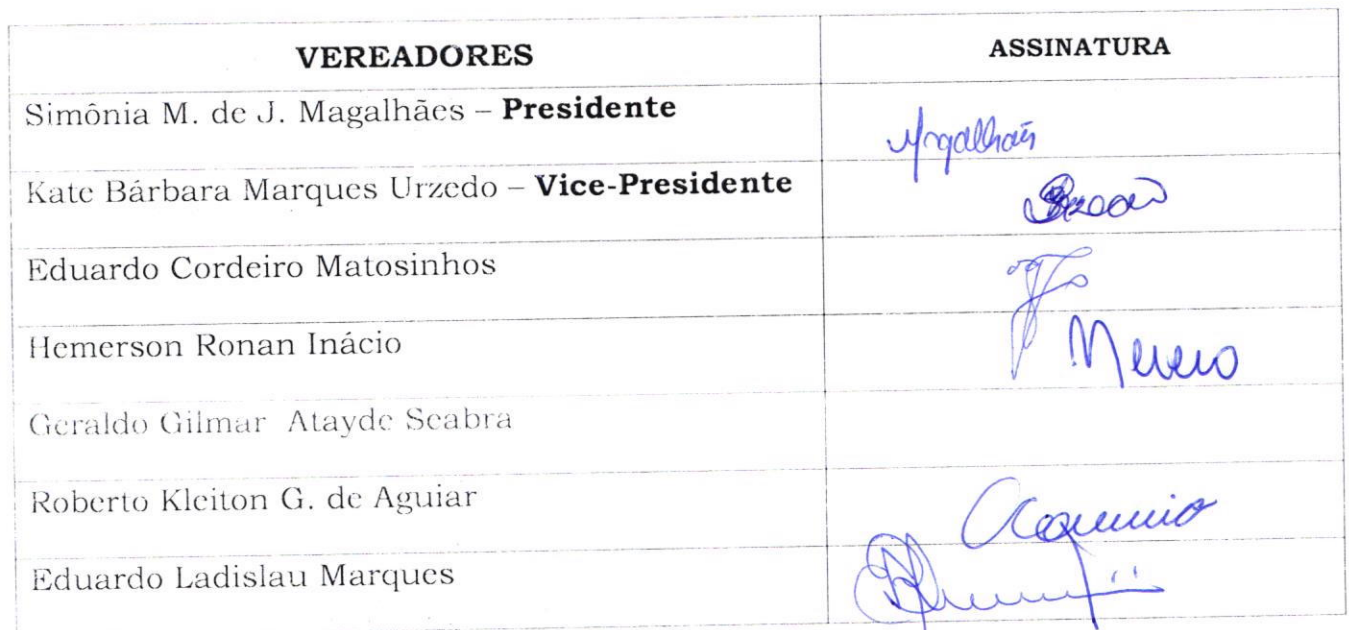 VEREADORES ASSINATURA
Simônia M. de J. Magalhães – Presidente Magalhães
Kate Bárbara Marques Urzedo – Vice-Presidente
Eduardo Cordeiro Matosinhos
Hemerson Ronan Inácio
Geraldo Gilmar Atayde Seabra
Roberto Kleiton G. de Aguiar
Eduardo Ladislau Marques